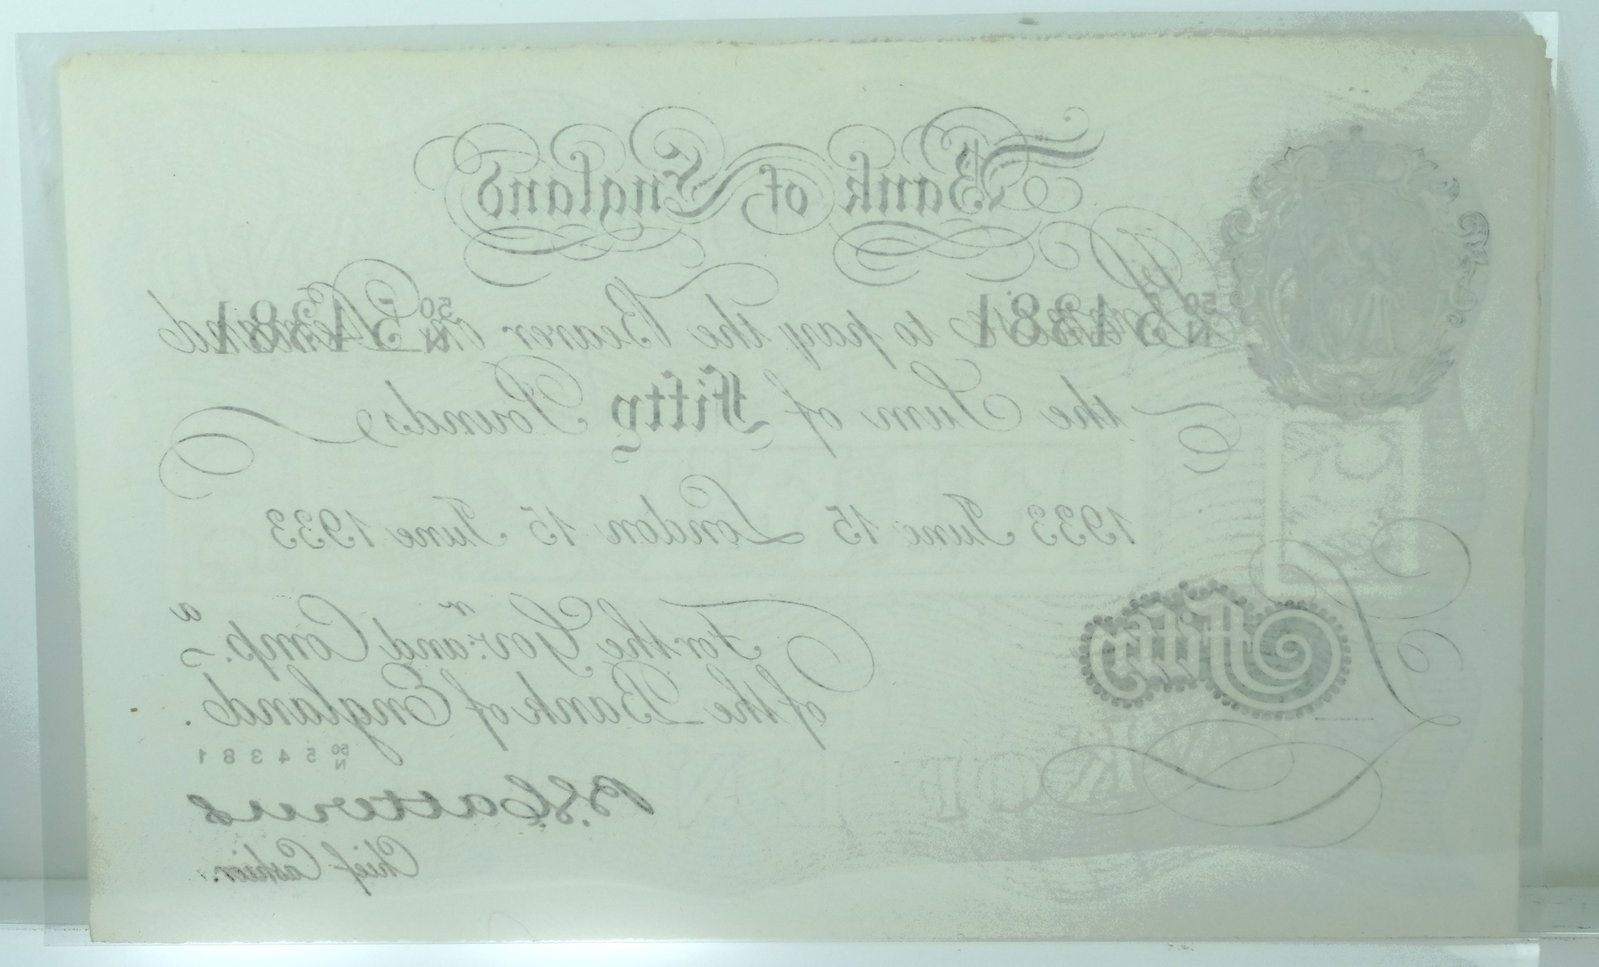 Bank of England
50/N 54381 Promise to pay the Bearer on Demand 50/N 54381
the Sum of Fifty Pounds
1933 June 15 London 15 June 1933
For the Gov.r and Comp.a
of the Bank of England.
Fifty
50/N 54381
B.G. Catterns
Chief Cashier.